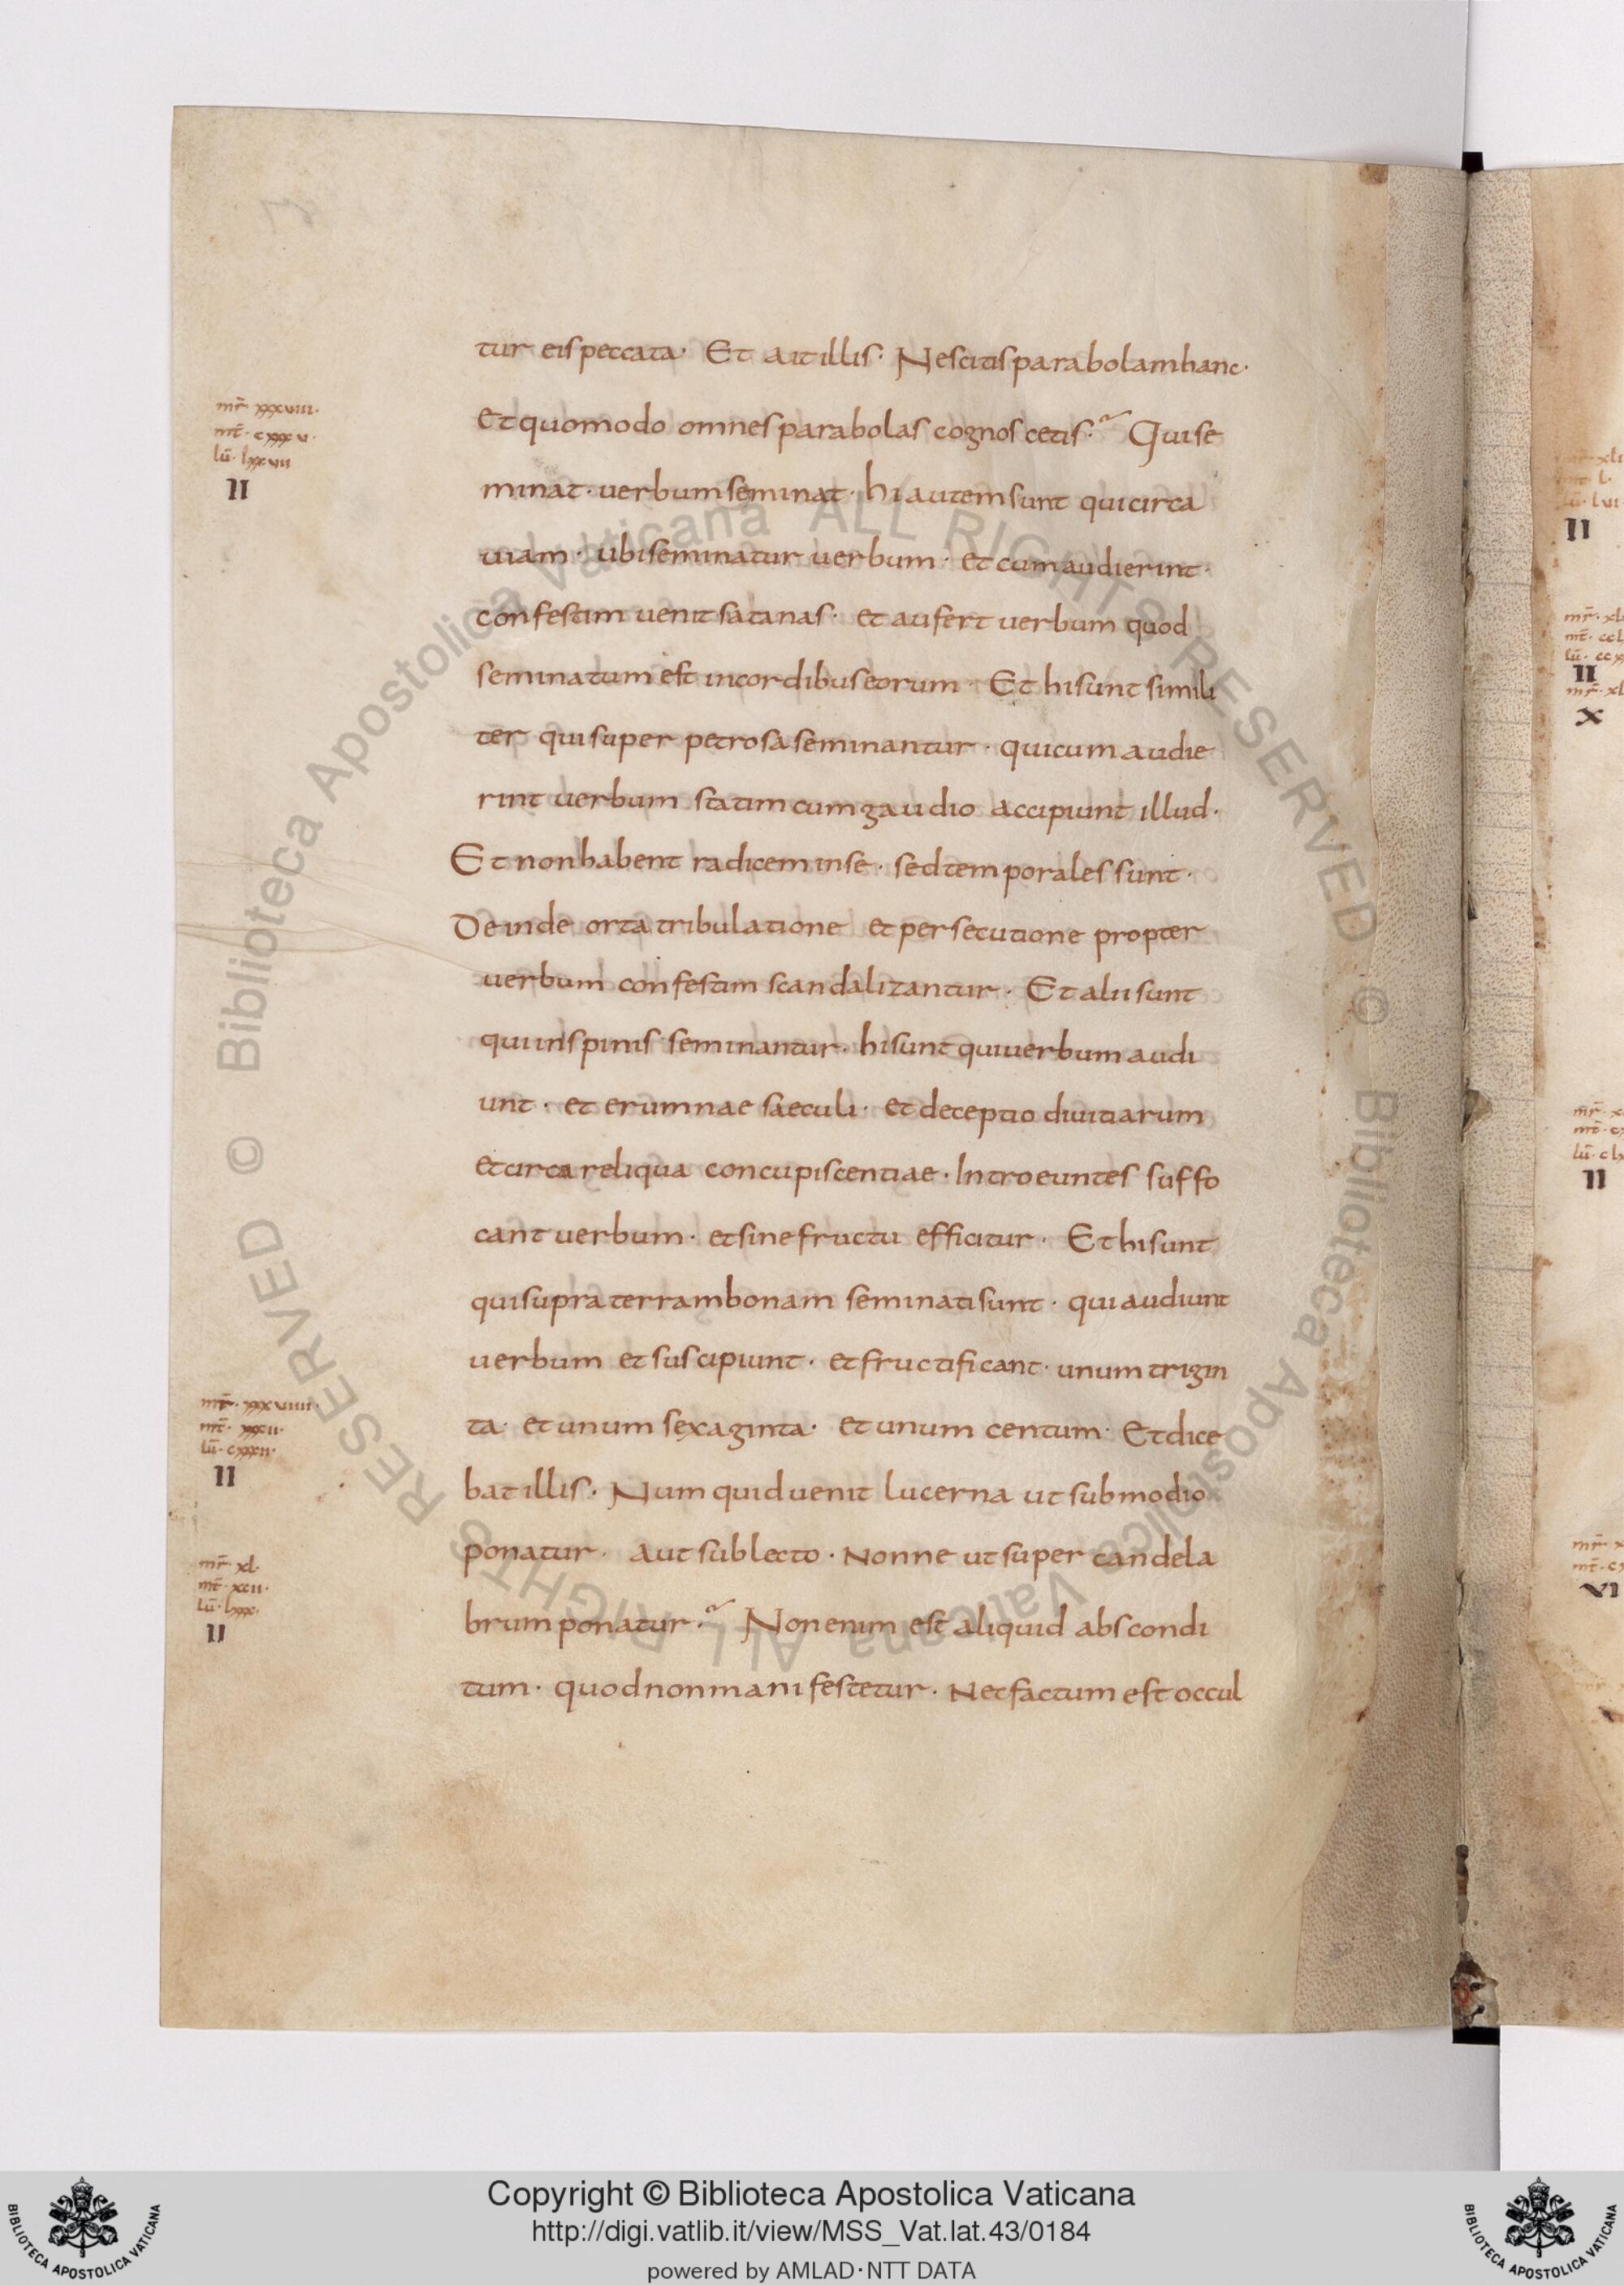 tur eis peccata· Et ait illis· Nescitis parabolam hanc·
mr̄ xxxviii·
Et quomodo omnes parabolas cognoscetis· Qui se
mt̄· cxxxv·
lū· lxxvii
II
minat· uerbum seminat· hi autem sunt qui circa
uiam· ubi seminatur uerbum· et cum audierint·
confestim uenit satanas· et aufert uerbum quod
seminatum est in cordibus eorum· Et hi sunt simili
ter qui super petrosa seminantur· qui cum audie
rint uerbum statim cum gaudio accipiunt illud·
Et non habent radicem in se· sed temporales sunt·
Deinde orta tribulatione et persecutione propter
uerbum confestim scandalizantur· Et alii sunt
qui in spinis seminantur· hi sunt qui uerbum audi
unt· et erumnae saeculi· et deceptio diuitiarum
et circa reliqua concupiscentiae· Introeuntes suffo
cant uerbum· et sine fructu efficitur· Et hi sunt
qui supra terram bonam seminati sunt· qui audiunt
uerbum et suscipiunt· et fructificant· unum trigin
mr̄· xxxviiii·
ta· et unum sexaginta· et unum centum· Et dice
mt̄· xxxii·
lū· cxxxii·
II
bat illis· Numquid uenit lucerna ut sub modio
ponatur· aut sub lecto· Nonne ut super candela
mr̄· xl·
mt̄· xcii·
lū· lxxx·
II
brum ponatur· Non enim est aliquid abscondi
tum· quod non manifestetur· Nec factum est occul
II
II
X
II
VI
© Biblioteca Apostolica Vaticana ALL RIGHTS RESERVED
© Biblioteca Apostolica Vaticana ALL RIGHTS RESERVED
Copyright © Biblioteca Apostolica Vaticana
http://digi.vatlib.it/view/MSS_Vat.lat.43/0184
powered by AMLAD·NTT DATA
BIBLIOTECA APOSTOLICA VATICANA
BIBLIOTECA APOSTOLICA VATICANA